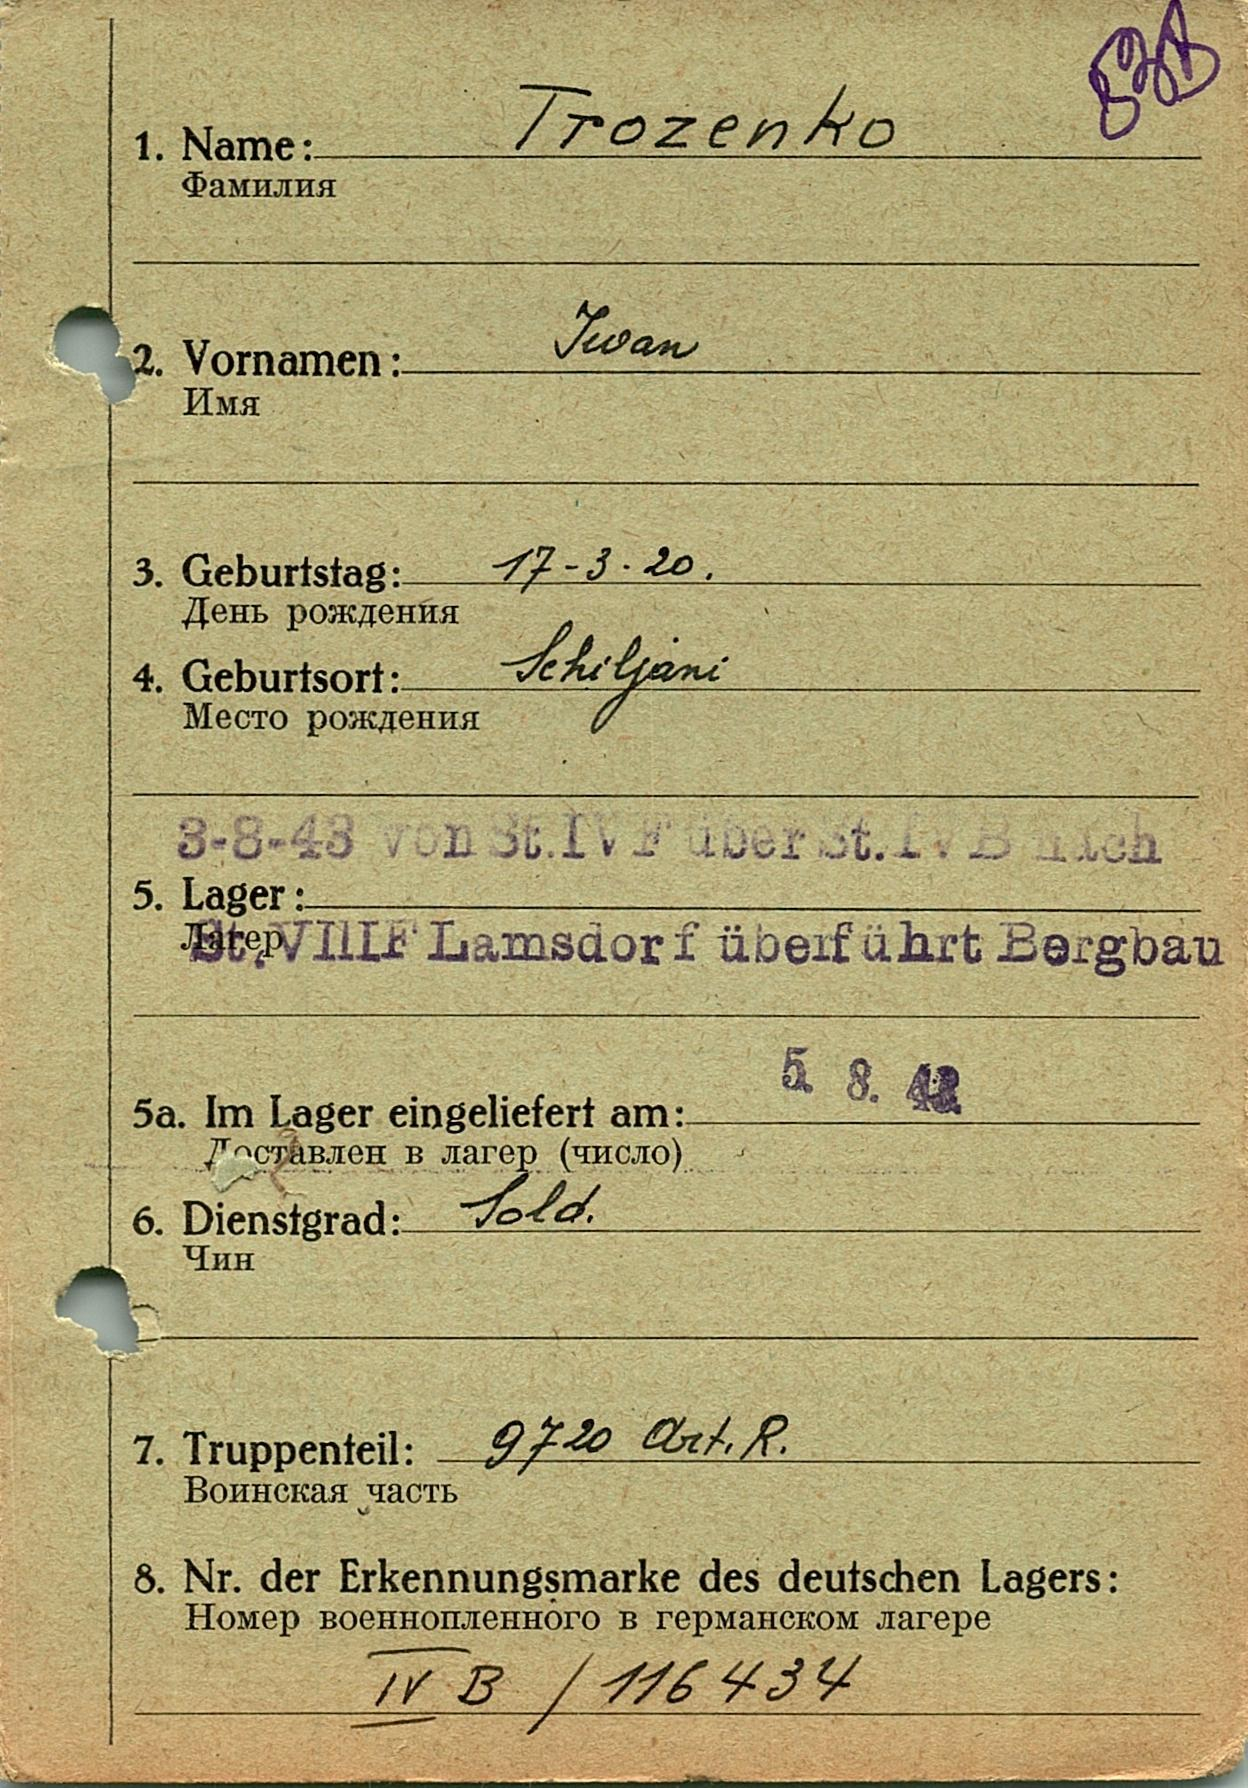 1. Name: Trozenko
Фамилия
2. Vornamen: Iwan
Имя
3. Geburtstag: 17-3.20.
День рождения
4. Geburtsort: Schiljani
Место рождения
3-8-43 von St.IVF über St.IVB nach
5. Lager:
Лагер
St.VIIIF Lamsdorf überführt Bergbau
5. 8. 43.
5a. Im Lager eingeliefert am:
Доставлен в лагер (число)
6. Dienstgrad: Sold.
Чин
7. Truppenteil: 9720 Art. R.
Воинская часть
8. Nr. der Erkennungsmarke des deutschen Lagers:
Номер военнопленного в германском лагере
IV B / 116434